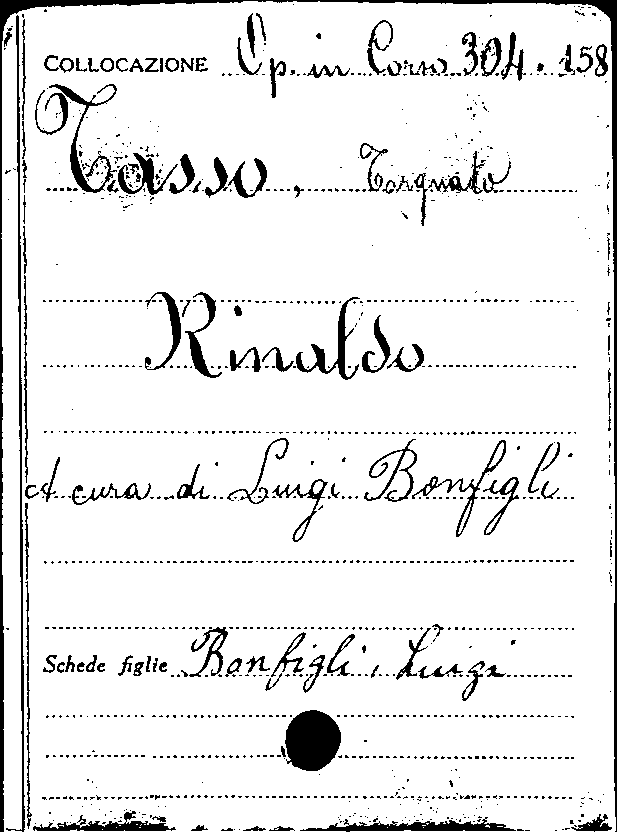 COLLOCAZIONE Op. in Corso 304. 158
Tasso, Torquato
Rinaldo
A cura di Luigi Bonfigli
Schede figlie Bonfigli, Luigi